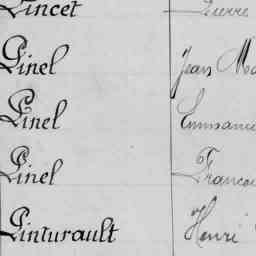 Pincet Pierre
Pinel Jean Ma
Pinel Emmanue
Pinel Françoi
Pinturault Henri